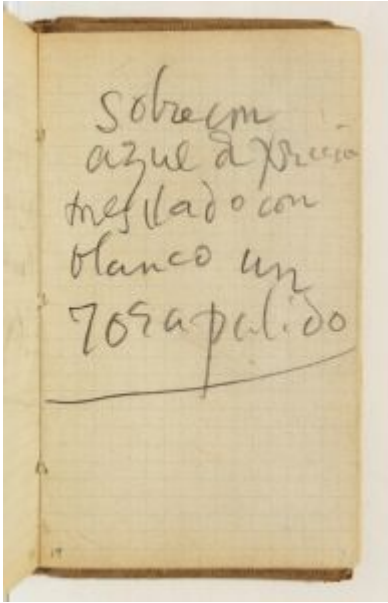 sobre un
azul d prusia
mesclado con
blanco un
rosa palido
19